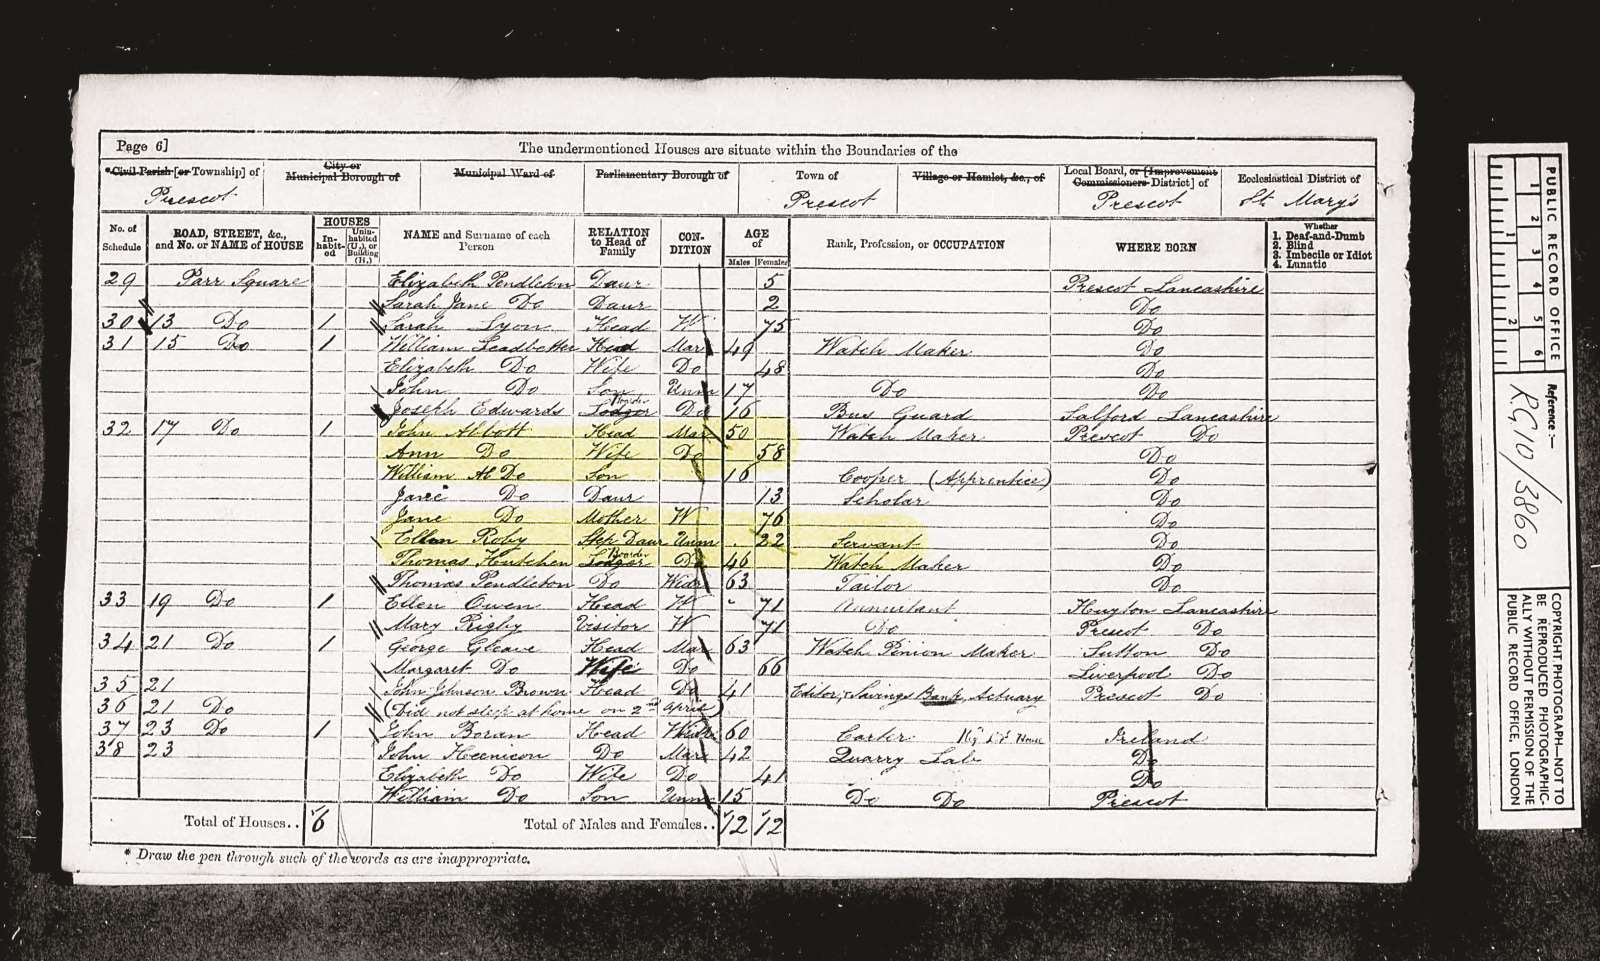 Page 6]
The undermentioned Houses are situate within the Boundaries of the
*Civil Parish [or Township] of
Prescot
City or
Municipal Borough of
Municipal Ward of
Parliamentary Borough of
Town of
Prescot
Village or Hamlet, &c., of
Local Board, or [Improvement
Commissioners District] of
Prescot
Ecclesiastical District of
St Mary's
No. of
Schedule
ROAD, STREET, &c.,
and No. or NAME of HOUSE
HOUSES
In-
habit-
ed
Unin-
habited
(U.), or
Building
(B.)
NAME and Surname of each
Person
RELATION
to Head of
Family
CON-
DITION
AGE
of
Males Females
Rank, Profession, or OCCUPATION
WHERE BORN
Whether
1. Deaf-and-Dumb
2. Blind
3. Imbecile or Idiot
4. Lunatic
29 Parr Square Elizabeth Pendleton Daur 5 Prescot Lancashire
Sarah Jane Do Daur 2 Do
30 13 Do 1 Sarah Lyon Head W 75 Do
31 15 Do 1 William Leadbetter Head Mar 49 Watch Maker Do
Elizabeth Do Wife Do 48 Do
John Do Son Unm 17 Do Do
Joseph Edwards Lodger Boarder Do 16 Bus Guard Salford Lancashire
32 17 Do 1 John Abbott Head Mar 50 Watch Maker Prescot Do
Ann Do Wife Do 58 Do
William Ab Do Son 16 Cooper (Apprentice) Do
Jane Do Daur 13 Scholar Do
Jane Do Mother W 76 Do
Ellen Roby Step Daur Unm 22 Servant Do
Thomas Hutchen Lodger Boarder Do 46 Watch Maker Do
Thomas Pendleton Do Widr 63 Tailor Do
33 19 Do 1 Ellen Owen Head W 71 Annuitant Huyton Lancashire
Mary Rigby Visitor W 71 Do Prescot Do
34 21 Do 1 George Gleave Head Mar 63 Watch Pinion Maker Sutton Do
Margaret Do Wife Do 66 Liverpool Do
35 21 John Johnson Brown Head Do 41 Editor, & Savings Bank Actuary Prescot Do
36 21 Do (Did not sleep at home on 2nd April)
37 23 Do 1 John Boran Head Widr 60 Carter Ireland
38 23 John Heenicon Do Mar 42 Quarry Lab Do
Elizabeth Do Wife Do 41 Do
William Do Son Unm 15 Do Do Prescot
Total of Houses.. 6
Total of Males and Females.. 12 12
* Draw the pen through such of the words as are inappropriate.
PUBLIC RECORD OFFICE
1 2 3 4 5 6
1 2
Reference:—
RG10/3860
COPYRIGHT PHOTOGRAPH—NOT TO
BE REPRODUCED PHOTOGRAPHIC-
ALLY WITHOUT PERMISSION OF THE
PUBLIC RECORD OFFICE, LONDON